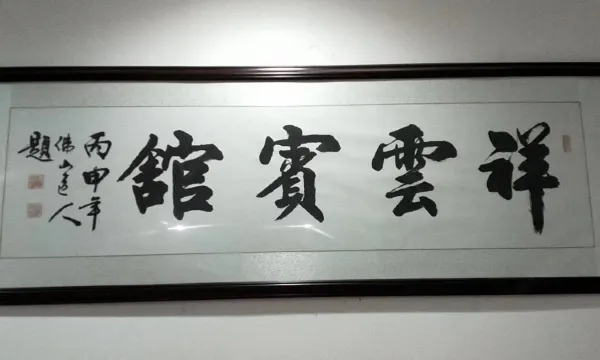 祥雲賓舘
丙申年
佛山道人
題